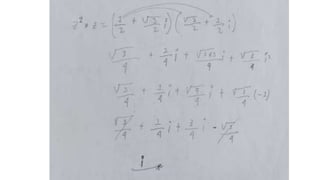 z² * z = (1/2 + √3/2 i) (√3/2 + 1/2 i)
√3/4 + 1/4 i + √3√3/4 i + √3/4 i²
√3/4 + 1/4 i + √9/4 i + √3/4 (-1)
√3/4 + 1/4 i + 3/4 i - √3/4
i